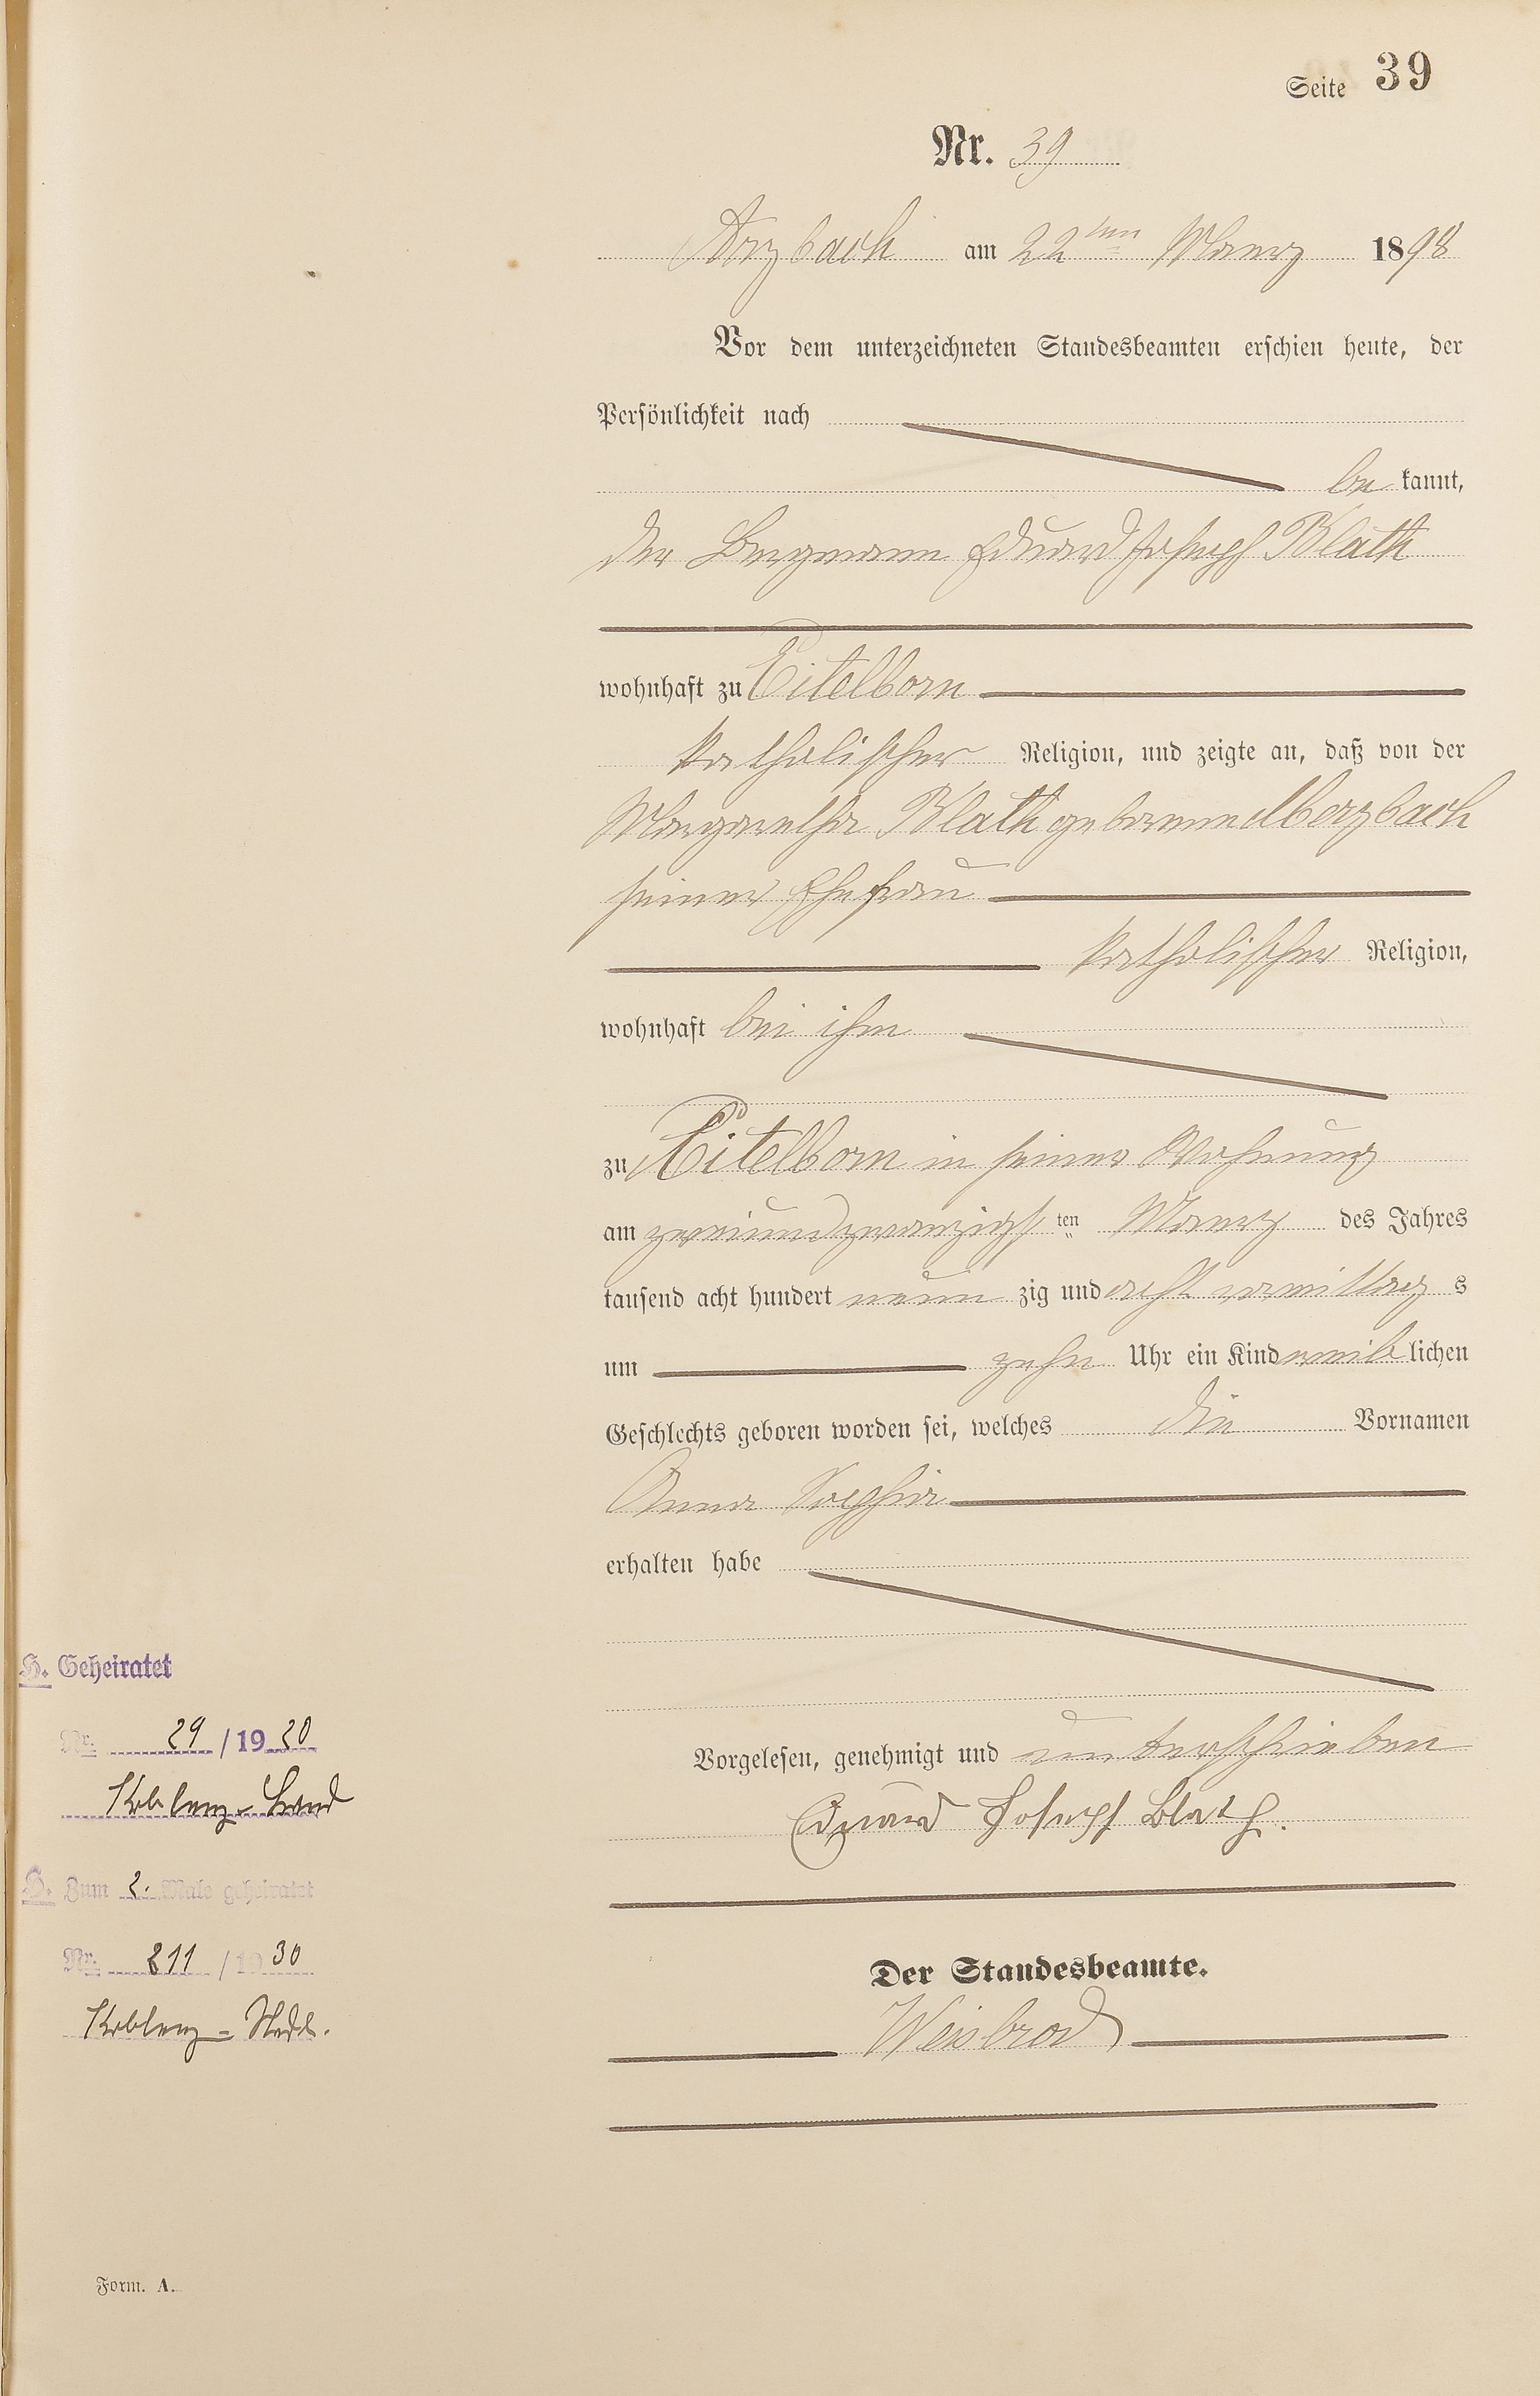 Seite 39
Nr. 39
Arzbach am 22ten Maerz 1898
Vor dem unterzeichneten Standesbeamten erschien heute, der
Persönlichkeit nach
be kannt,
der Bergmann Eduard Joseph Blath
wohnhaft zu Eitelborn
katholischer Religion, und zeigte an, daß von der
Margaretha Blath geborene
seiner Ehefrau
katholischer Religion,
wohnhaft bei ihm
zu Eitelborn in seiner Wohnung
am zweiundzwanzigsten Maerz des Jahres
tausend acht hundert neun zig und acht vormittag s
um zehn Uhr ein Kind weib lichen
Geschlechts geboren worden sei, welches die Vornamen
Anna Sophia
erhalten habe
Vorgelesen, genehmigt und unterschrieben
Eduard Joseph Blath.
Der Standesbeamte.
Weisbrod
H. Geheiratet
Nr. 29 / 1920
Koblenz-Land
H. Zum 2. Male geheiratet
Nr. 811 / 1930
Koblenz-Stadt.
Form. A.